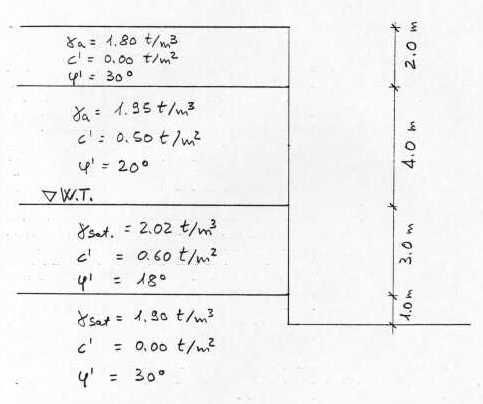 γa = 1.80 t/m³
c' = 0.00 t/m²
φ' = 30°
2.0 m
γa = 1.95 t/m³
c' = 0.50 t/m²
φ' = 20°
4.0 m
▽ W.T.
γsat. = 2.02 t/m³
c' = 0.60 t/m²
φ' = 18°
3.0 m
γsat = 1.90 t/m³
c' = 0.00 t/m²
φ' = 30°
1.0 m